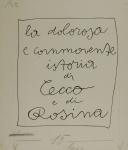 la dolorosa
e commovente
istoria
di
Cecco
e di
Rosina
15